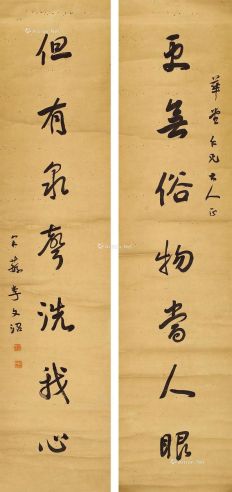 華堂仁兄大人正
更無俗物當人眼
但有泉聲洗我心
李文沼